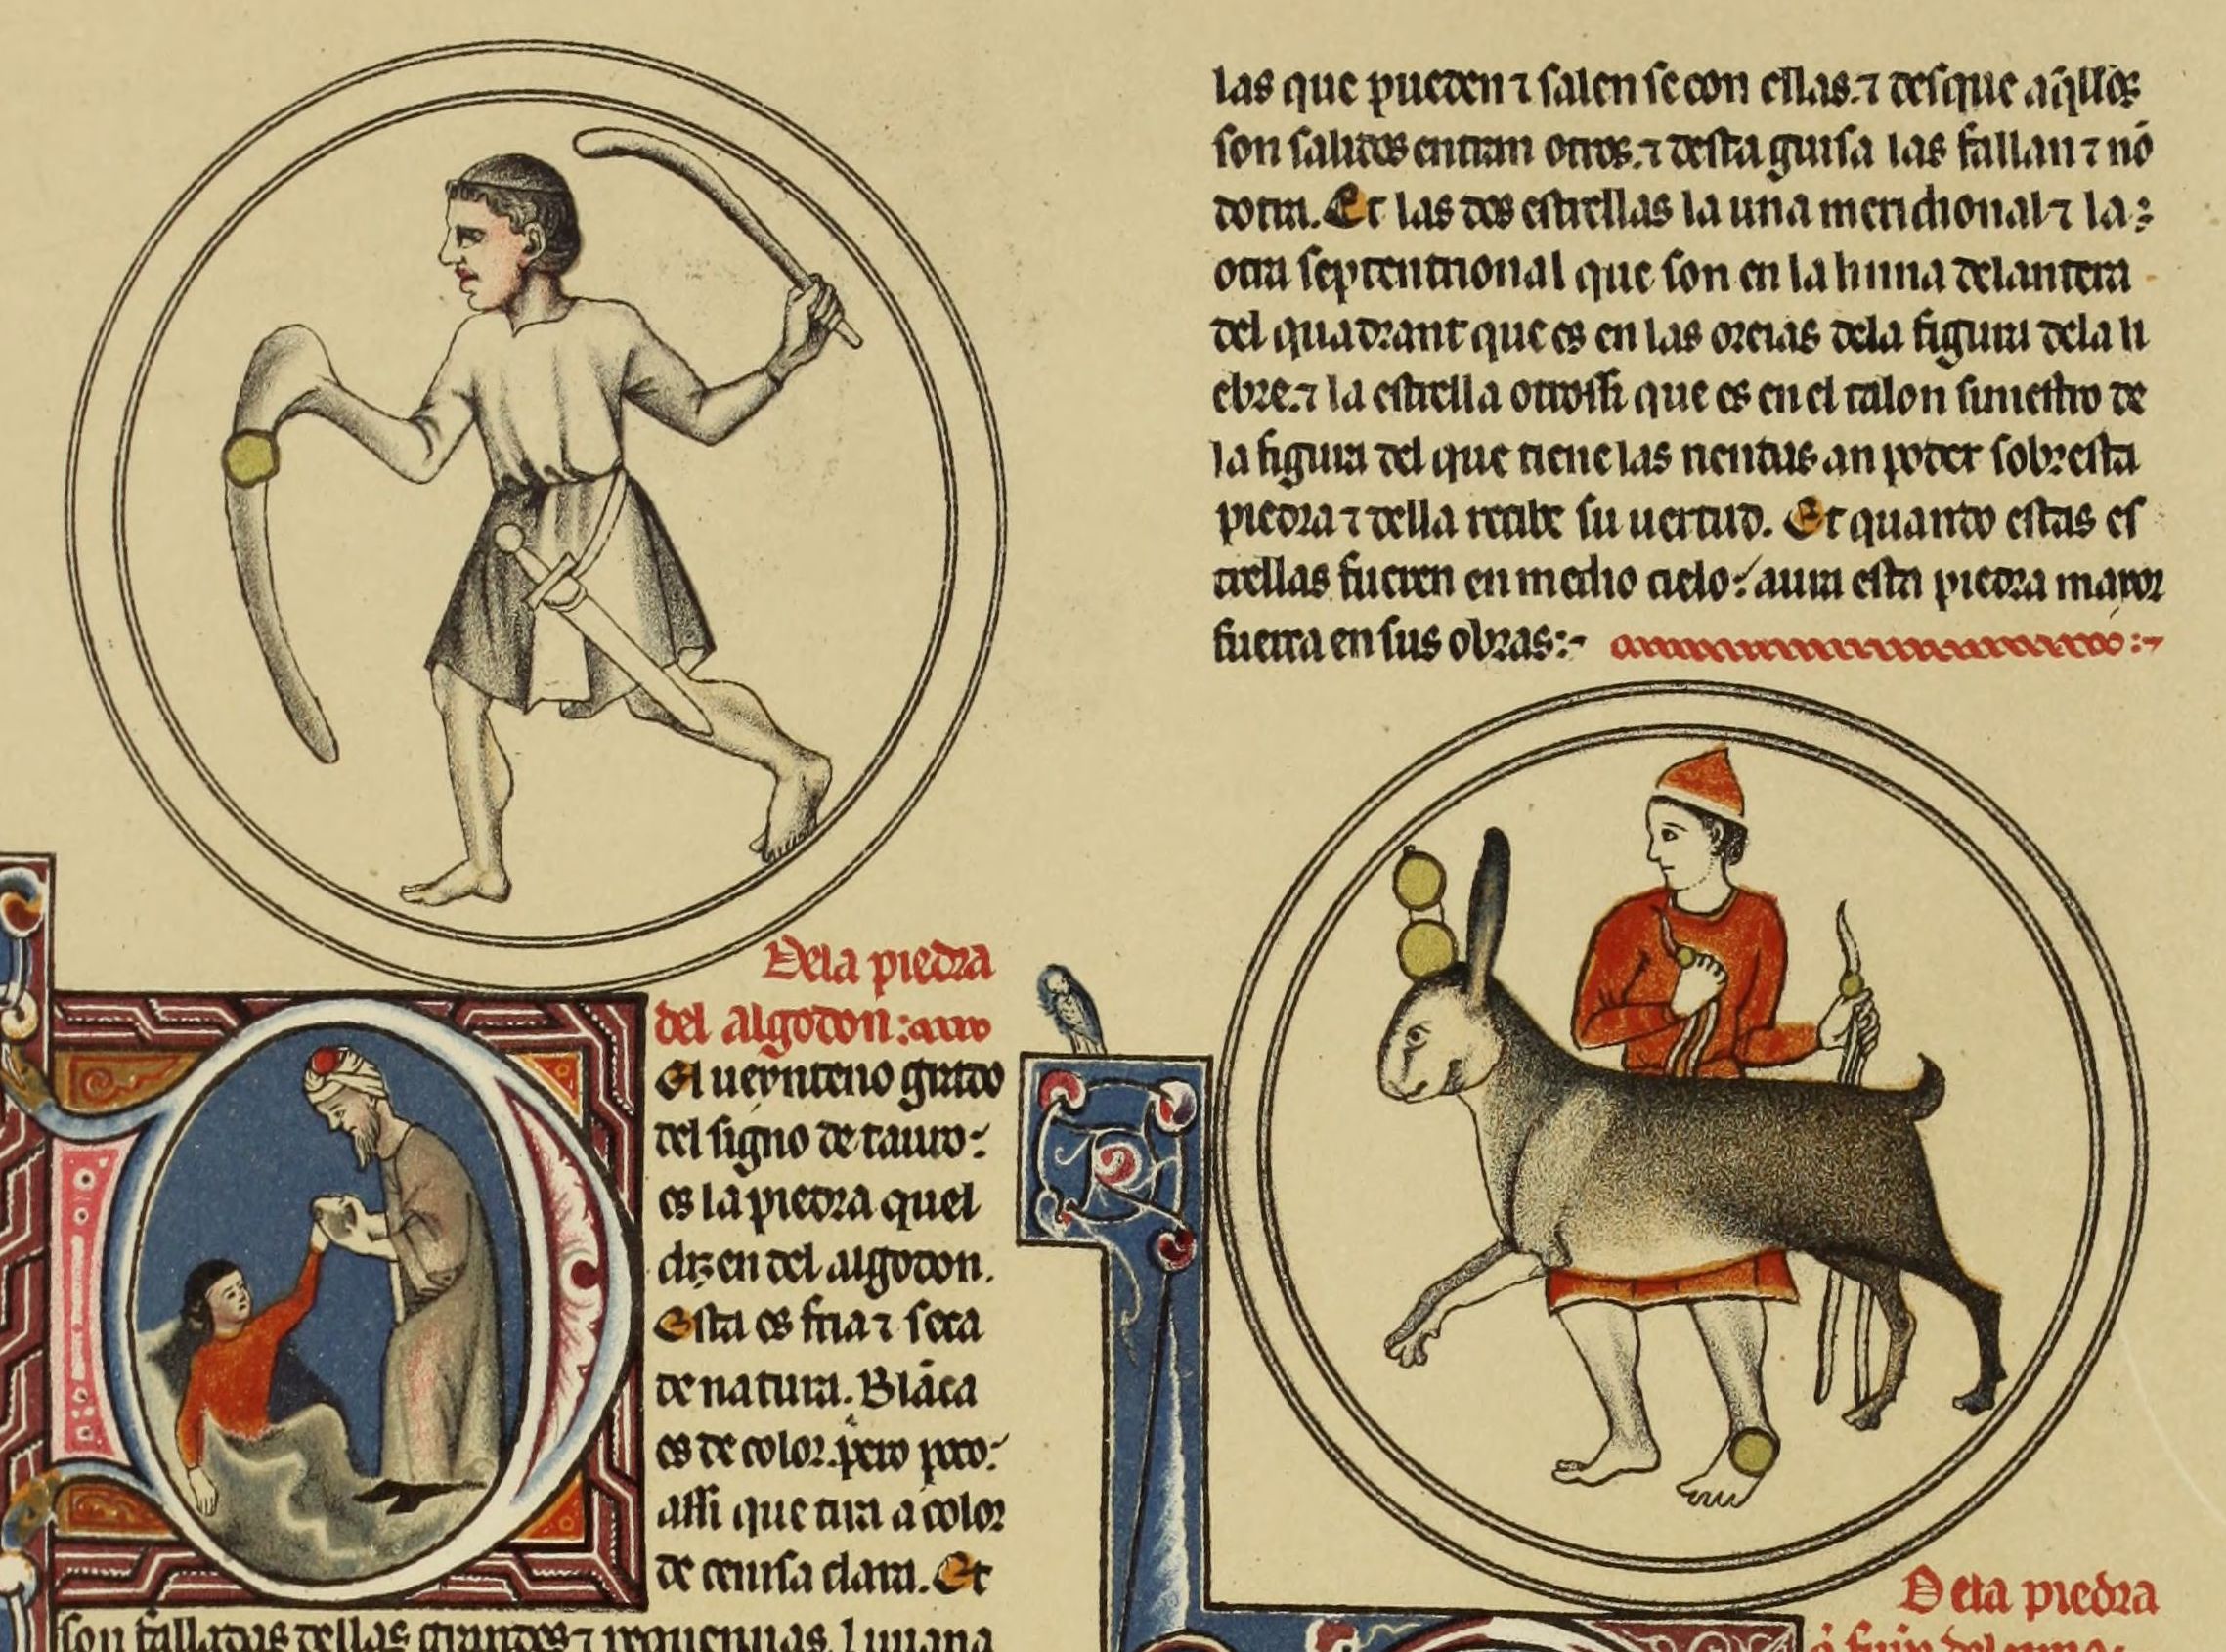 Dela piedra
del algodon:
El ueynteno grado
del signo de tauro:
es la piedra quel
dizen del algodon.
Esta es fria ⁊ seca
de natura. Blãca
es de color. pero poco:
assi que tira a color
de cenisa clara. Et
son falladas dellas grandes ⁊ pequennas. Liuiana
las que pueden ⁊ salen se con ellas. ⁊ desque aq̃llos
son salidos entran otros. ⁊ desta guisa las fallan ⁊ nõ
dotra. Et las dos estrellas la una meridional ⁊ la
otra septentrional que son en la linna delantera
del quadrant que es en las oreias dela figura dela li
ebre. ⁊ la estrella otrossi que es en el talon siniestro de
la figura del que tiene las riendas an poder sobresta
piedra ⁊ della recibe su uertud. Et quando estas es
trellas fueren en medio cielo: aura esta piedra mayor
fuerça en sus obras:-
Dela piedra